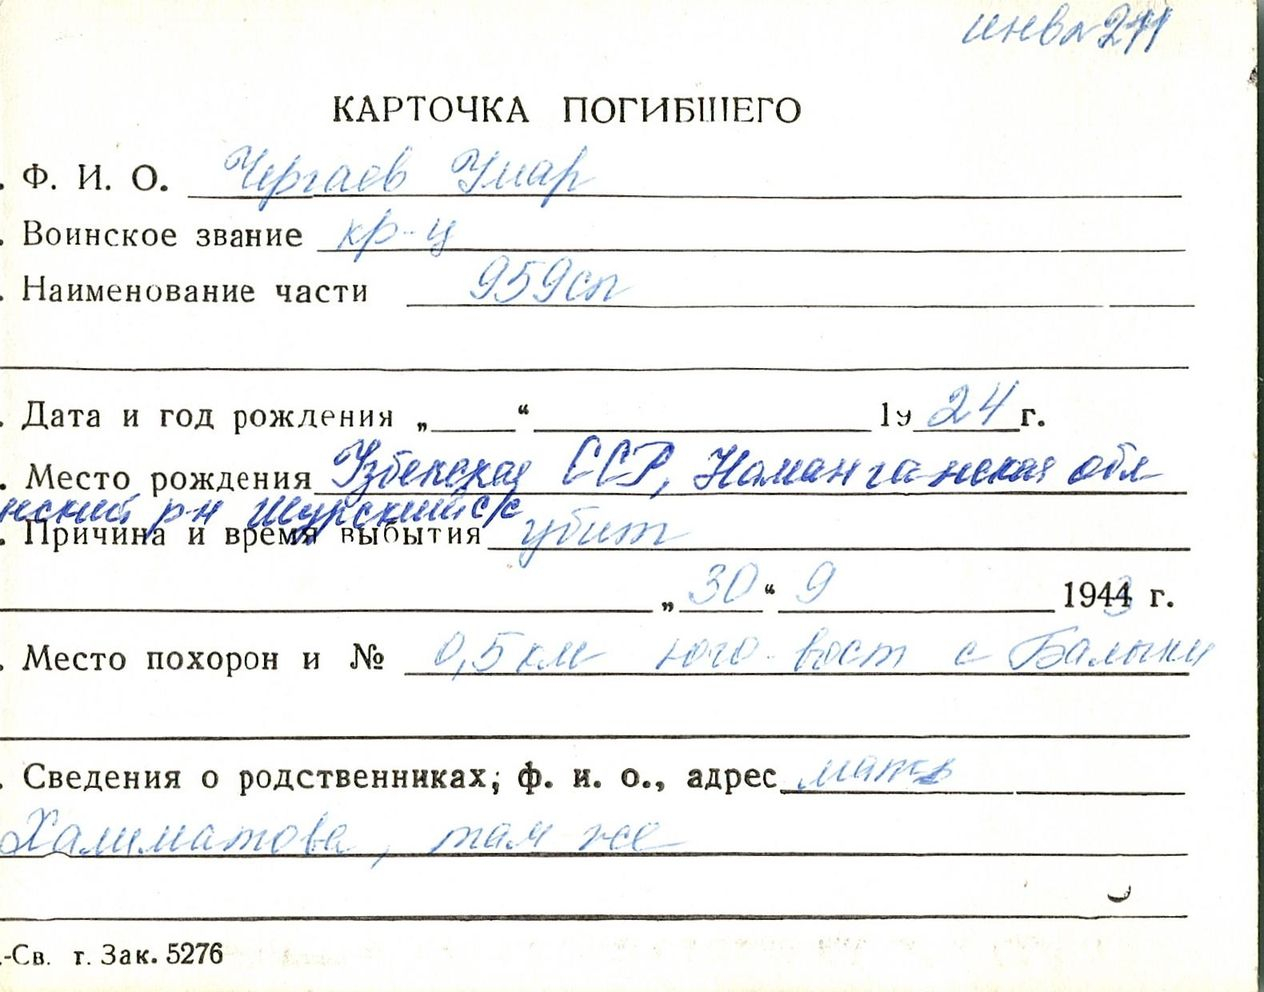 инв № 211
КАРТОЧКА ПОГИБШЕГО
. Ф. И. О. Чергаев Умар
. Воинское звание кр-ц
. Наименование части 959сп
. Дата и год рождения „ “ 1924 г.
. Место рождения Узбекская ССР, Наманганская обл
нский р-н Шурский с/с
. Причина и время выбытия убит
„ 30 “ 9 1943 г.
. Место похорон и № 0,5 км юго-вост с Балыки
. Сведения о родственниках; ф. и. о., адрес мать
Халиматова, там же
.-Св. т. Зак. 5276